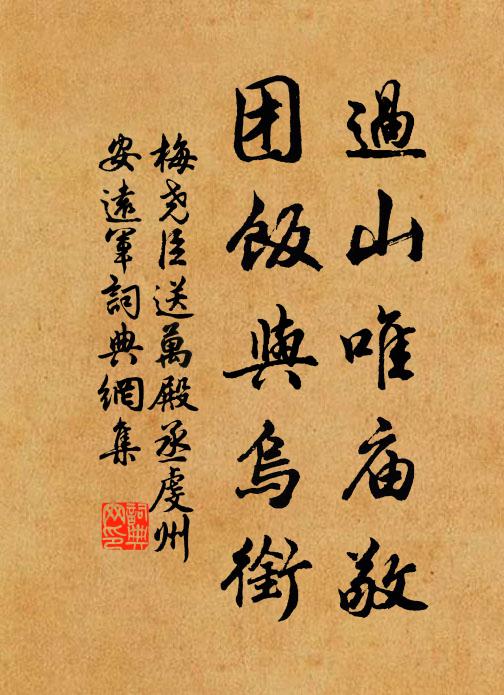 過山唯庙敬
团飯與烏銜
梅尧臣送萬殿丞虔州
安遠軍詞典網集
詞典
网印